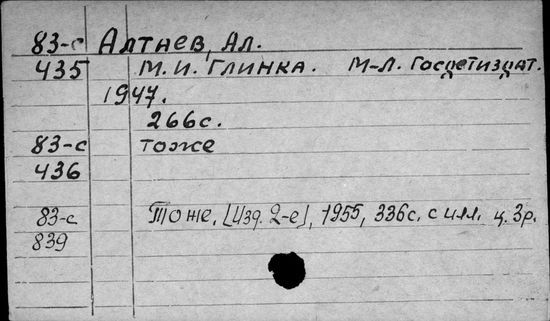 83-с Алтаев, Ал.
435 М.И. Глинка. М-Л. Госдетиздат.
1947.
266с.
83-с тоже
436
83-с Тоже, [Изд. 2-е], 1955, 336с. с илл. ц. 3р.
839